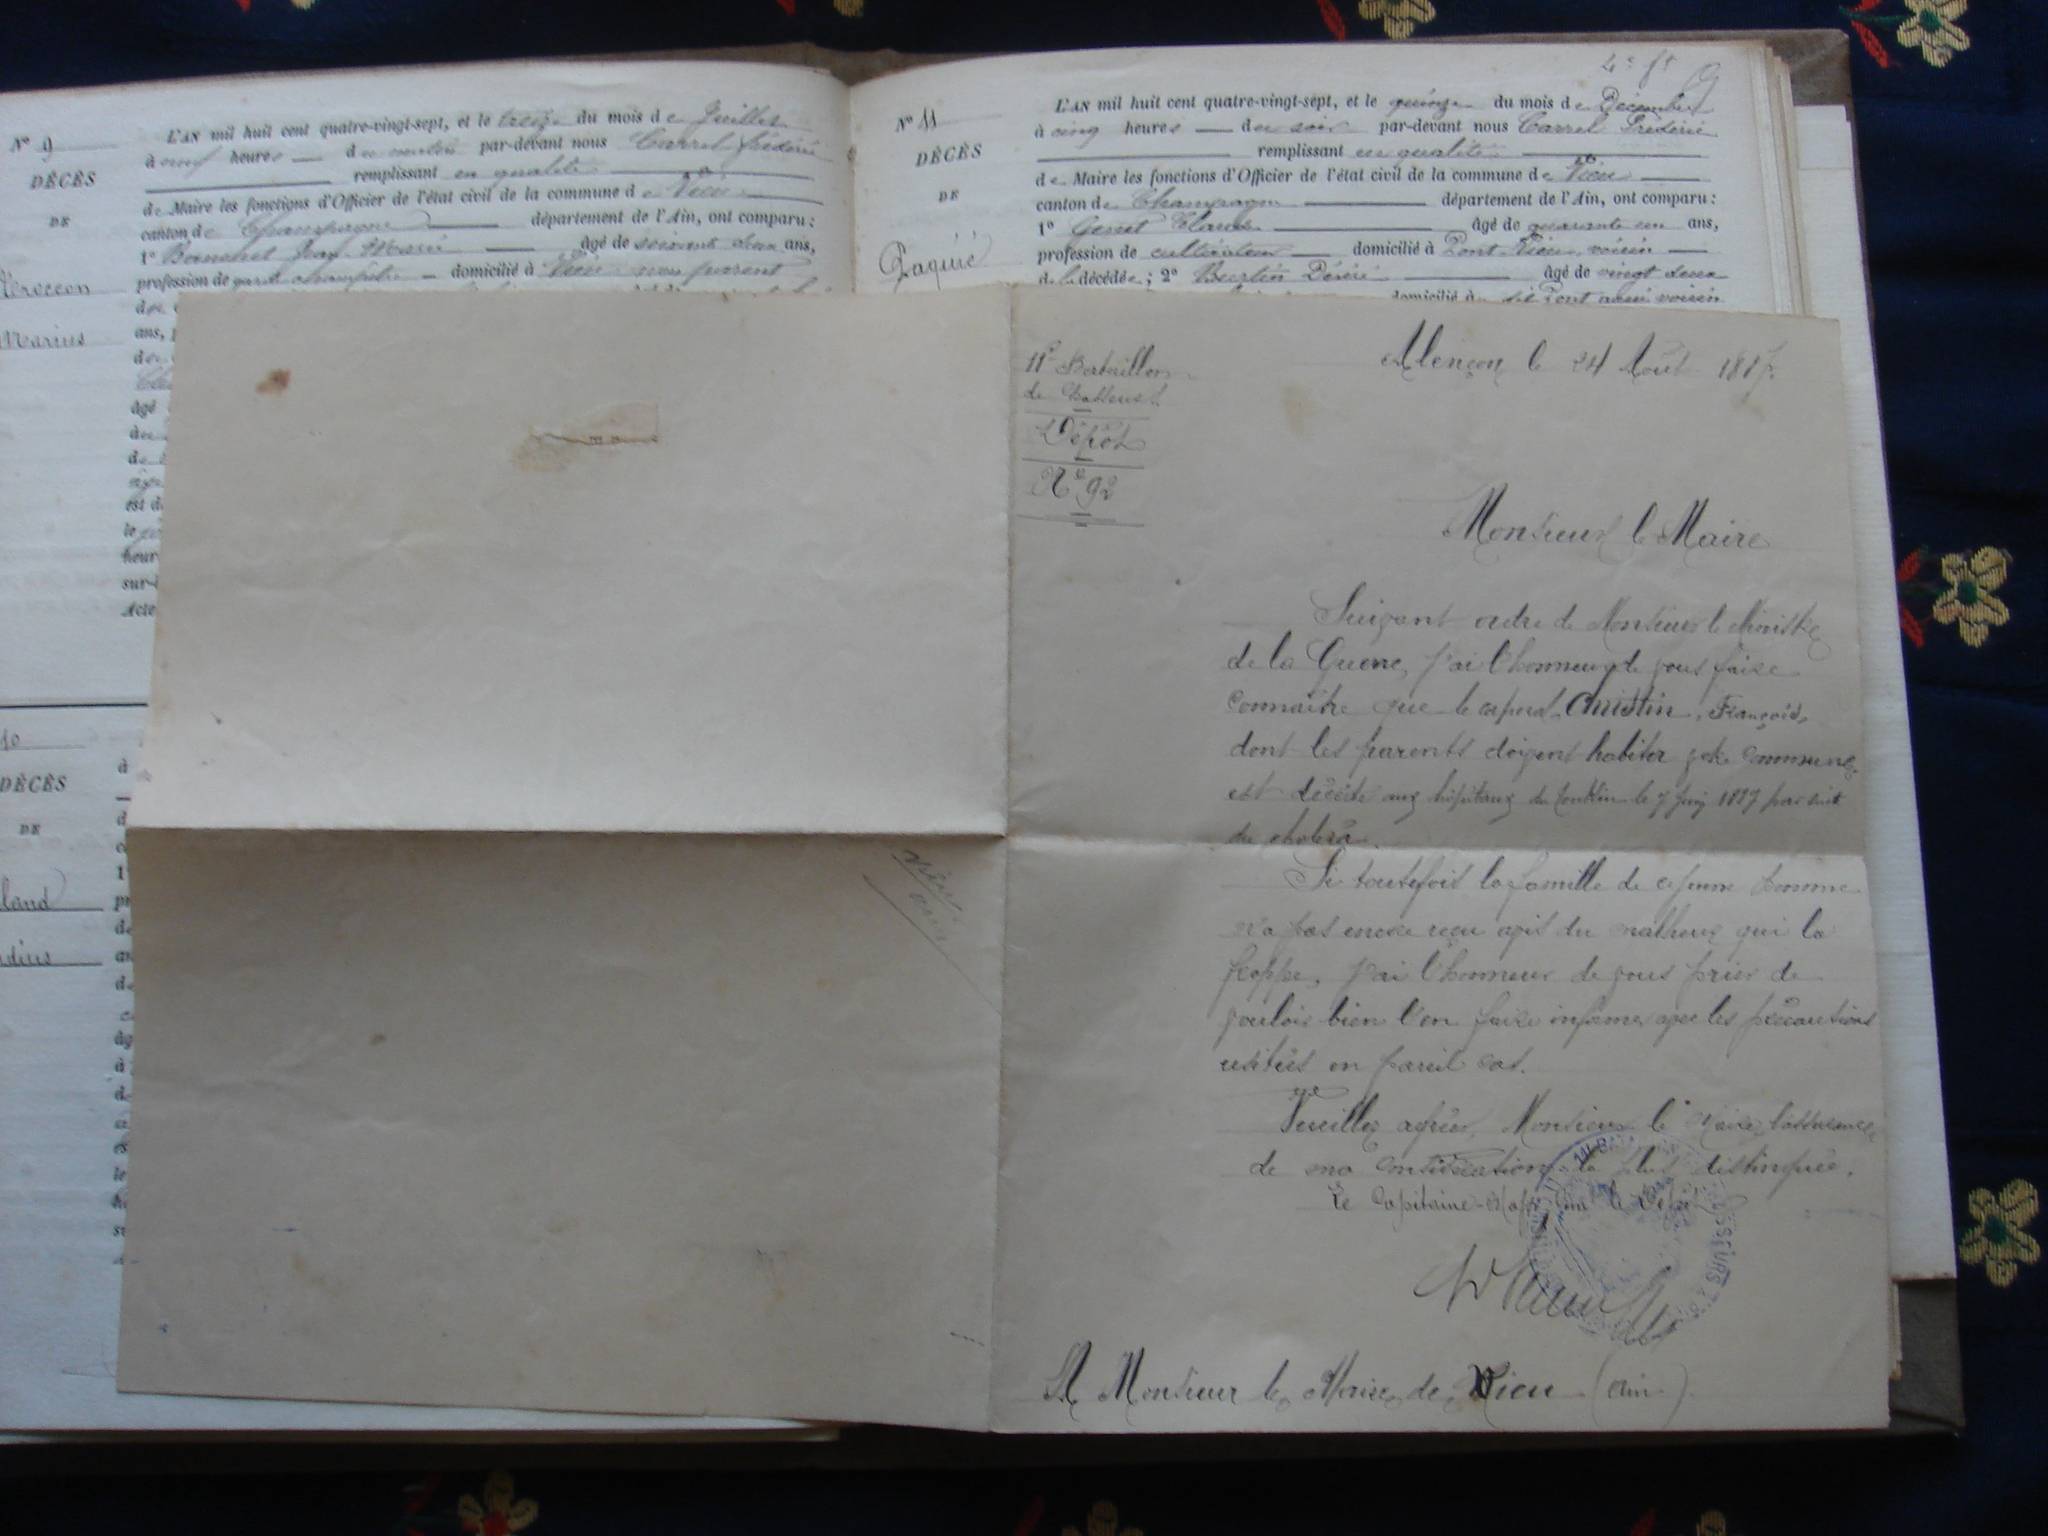 Nº 9
DÉCÈS
DE
Marius
L'AN mil huit cent quatre-vingt-sept, et le treize du mois de Juillet
à neuf heures du matin par-devant nous Carrel Frédéric
remplissant en qualité
de Maire les fonctions d'Officier de l'état civil de la commune de Vieu
canton de Champagne département de l'Ain, ont comparu :
1º Jean Marie âgé de soixante deux ans,
profession de garde champêtre domicilié à Vieu non parent
ans,
âgé
est d
le
heur
sur-l
Acte
10
DÉCÈS
DE
land
dius
4e ft
9
Nº 11
DÉCÈS
DE
Paquié
L'AN mil huit cent quatre-vingt-sept, et le quinze du mois de Décembre
à cinq heures du soir par-devant nous Carrel Frédéric
remplissant en qualité
de Maire les fonctions d'Officier de l'état civil de la commune de Vieu
canton de Champagne département de l'Ain, ont comparu :
1º Genet Claude âgé de quarante un ans,
profession de cultivateur domicilié à Pont, Vieu, voisin
de la décédée ; 2º Bertin Désiré âgé de vingt deux
domicilié à dit Pont aussi voisin
11e Bataillon
de Chasseurs
Dépôt
Nº 92
Alençon le 24 Août 1887.
Monsieur le Maire
Suivant ordre de Monsieur le Ministre
de la Guerre, j'ai l'honneur de vous faire
connaître que le caporal François,
dont les parents doivent habiter votre commune
est décédé aux hôpitaux du Tonkin le 7 Juin 1887 par suite
du choléra.
Si toutefois la famille de ce jeune homme
n'a pas encore reçu avis du malheur qui la
frappe, j'ai l'honneur de vous prier de
vouloir bien l'en faire informer avec les précautions
usitées en pareil cas.
Veuillez agréer, Monsieur le Maire, l'assurance
de ma considération la plus distinguée.
Le Capitaine-Major Cmt le Dépôt
A Monsieur le Maire de Vieu (Ain)